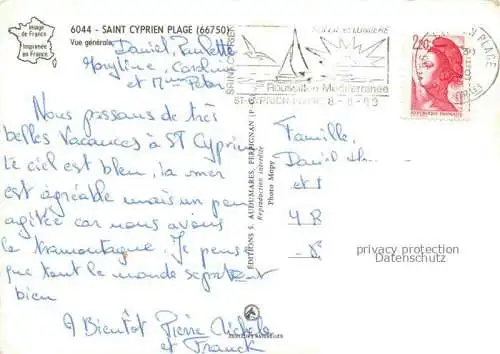 Image
de France
Imprimée
en France
6044 - SAINT CYPRIEN PLAGE (66750)
Vue générale
Daniel, Paulette
Maryline Caroline
et Mme
Nous passons de très
belles Vacances à ST Cyprien
le ciel est bleu, la mer
est agréable mais un peu
agitée car nous avons
la tramontagne. Je pense
que tout le monde se
bien
A Bientôt Pierre Michele
et Franck
EDITIONS S. AUDUMARES, PERPIGNAN
Reproduction interdite
Photo Mopy
SAINT CYPRIEN
ET LUMIERE
Roussillon Méditerranée
PLAGE
2,20
REPUBLIQUE FRANÇAISE
Famille,
Daniel
et
4 R
privacy protection
Datenschutz